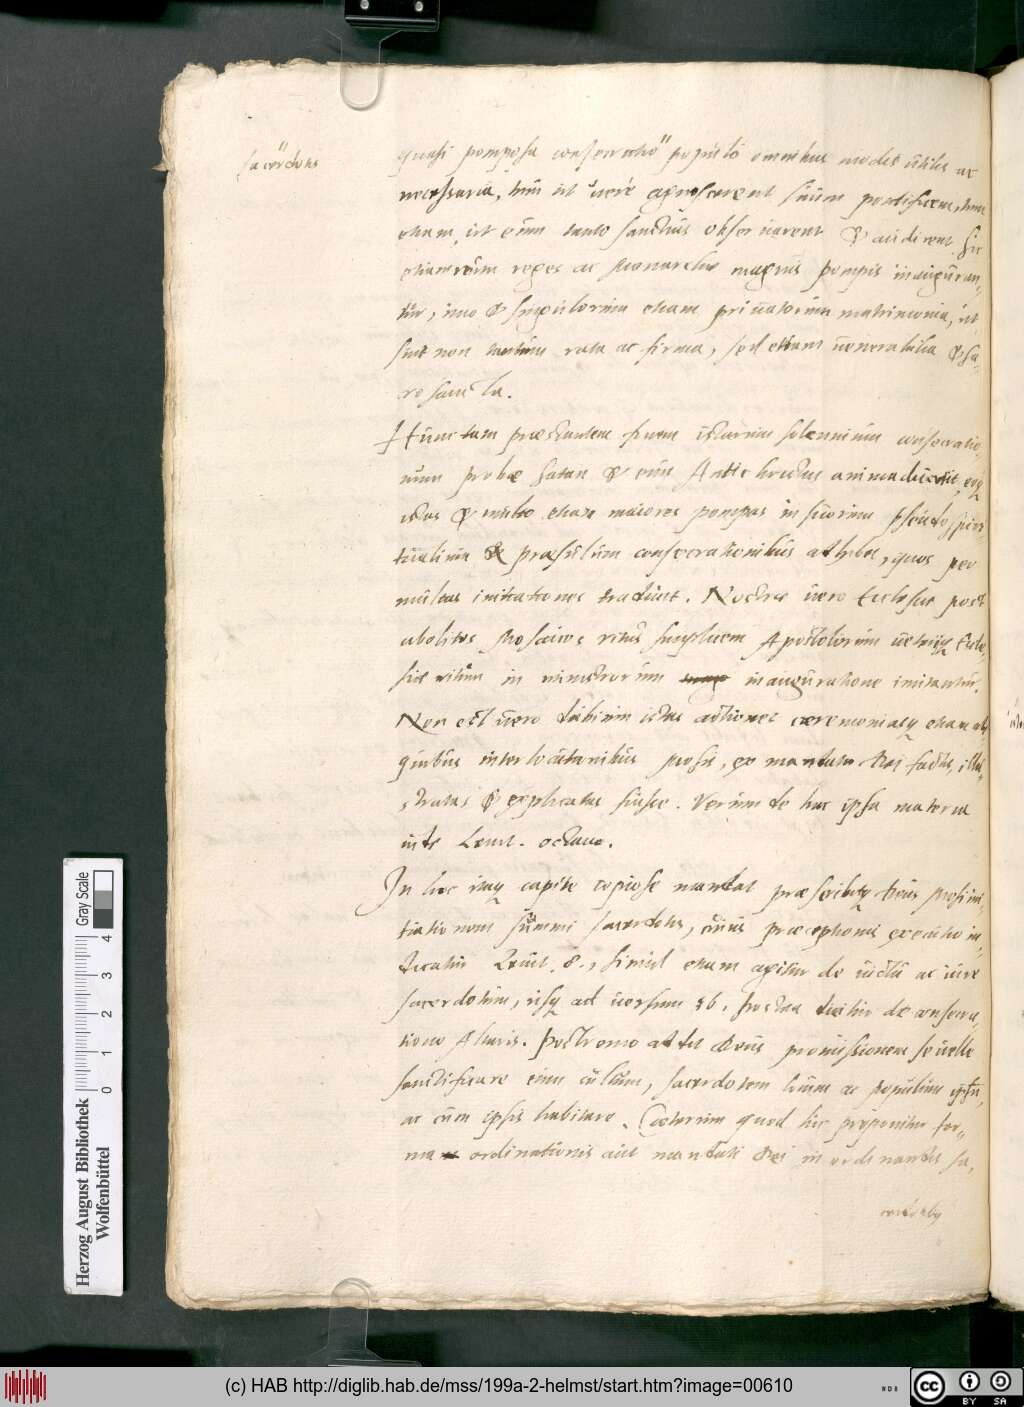 sacerdotis
quasi pomposa consecratio populo omnibus modis utilis ac
necessaria, tum ut vere agnoscerent suum pontificem, tum
etiam, ut eum tanto sanctius observarent & audirent sic
etiam reges ac Monarchae magnis pompis inauguran-
tur, imo & singulorum etiam privatorum matrimonia, ut
sint non tantum rata ac firma, sed etiam venerabilia & sa-
crosancta.
Hunc tam praestantem finem istarum solennium consecratio-
num probe Satan & eius Antichristus animadvertit, eoque
istas & multo etiam maiores pompas in suorum Pseudospiri-
tualium & praesulum consecrationibus adhibet, quos per
multas imitationes tradunt. Nostrae vero Ecclesiae post
abolitos Mosaicos ritus simplicem Apostolorum veterisque Eccle-
siae ritum in ministrorum inauguratione imitantur.
Non est vero dubium istas actiones ceremoniasque etiam ali-
quibus interlocutionibus Mosis, ex mandato Dei factis, illu-
stratas & explicatas fuisse. Verum de hac ipsa materia
vide Levit. octavo.
In hoc itaque capite copiose mandat praescribitque Deus Mosi ini-
tiationem summi sacerdotis, cuius praeceptionis executio in-
dicatur Levit. 8., simul etiam agitur de victu ac iure
sacerdotum, usque ad versum 36. Postea dicitur de consecra-
tione Altaris. Postremo addit Deus promissionem se velle
sanctificare eum cultum, sacerdotem suum ac populum ipsum,
ac cum ipsis habitare. Caeterum quod hic proponitur for-
ma ordinationis aut mandati Dei in ordinandis sa-
cerdotibus
Herzog August Bibliothek
Wolfenbüttel
0 1 2 3 4
Gray Scale
(c) HAB http://diglib.hab.de/mss/199a-2-helmst/start.htm?image=00610
cc BY SA